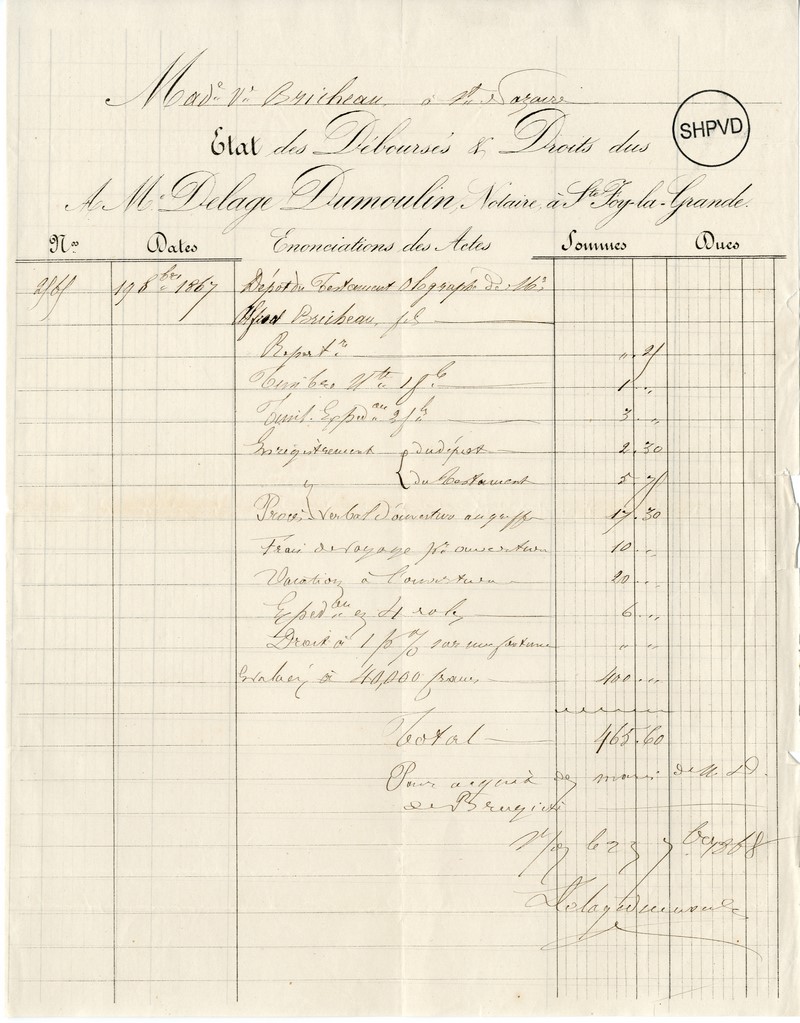 Made Ve Bricheau à St Nazaire
SHPVD
Etat des Déboursés & Droits dus
A Me Delage Dumoulin, Notaire, à Ste Foy-la-Grande.
Nos Dates Enonciations des Actes Sommes Dues
19 8bre 1867 Dépôt du Testament Olographe de Mr
Alfred Bricheau, fils
Repertre " 25
Timbre Mte 1 f 1 "
Timb. Expedon 2 f 3 "
Enregistrement du dépôt 2.30
" du Testament 5 75
Procès verbal d'ouverture au greffe 17.30
Frais de voyage pr ouverture 10 "
Vacation à l'ouverture 20 "
Expedon en 4 roles 6 "
Droit à 1 p % sur une fortune " "
Evaluée à 40,000 francs 400 "
Total 465.60
Pour acquit des mains de M.
de
Foy le 23 7bre 1868
Delagedumoulin